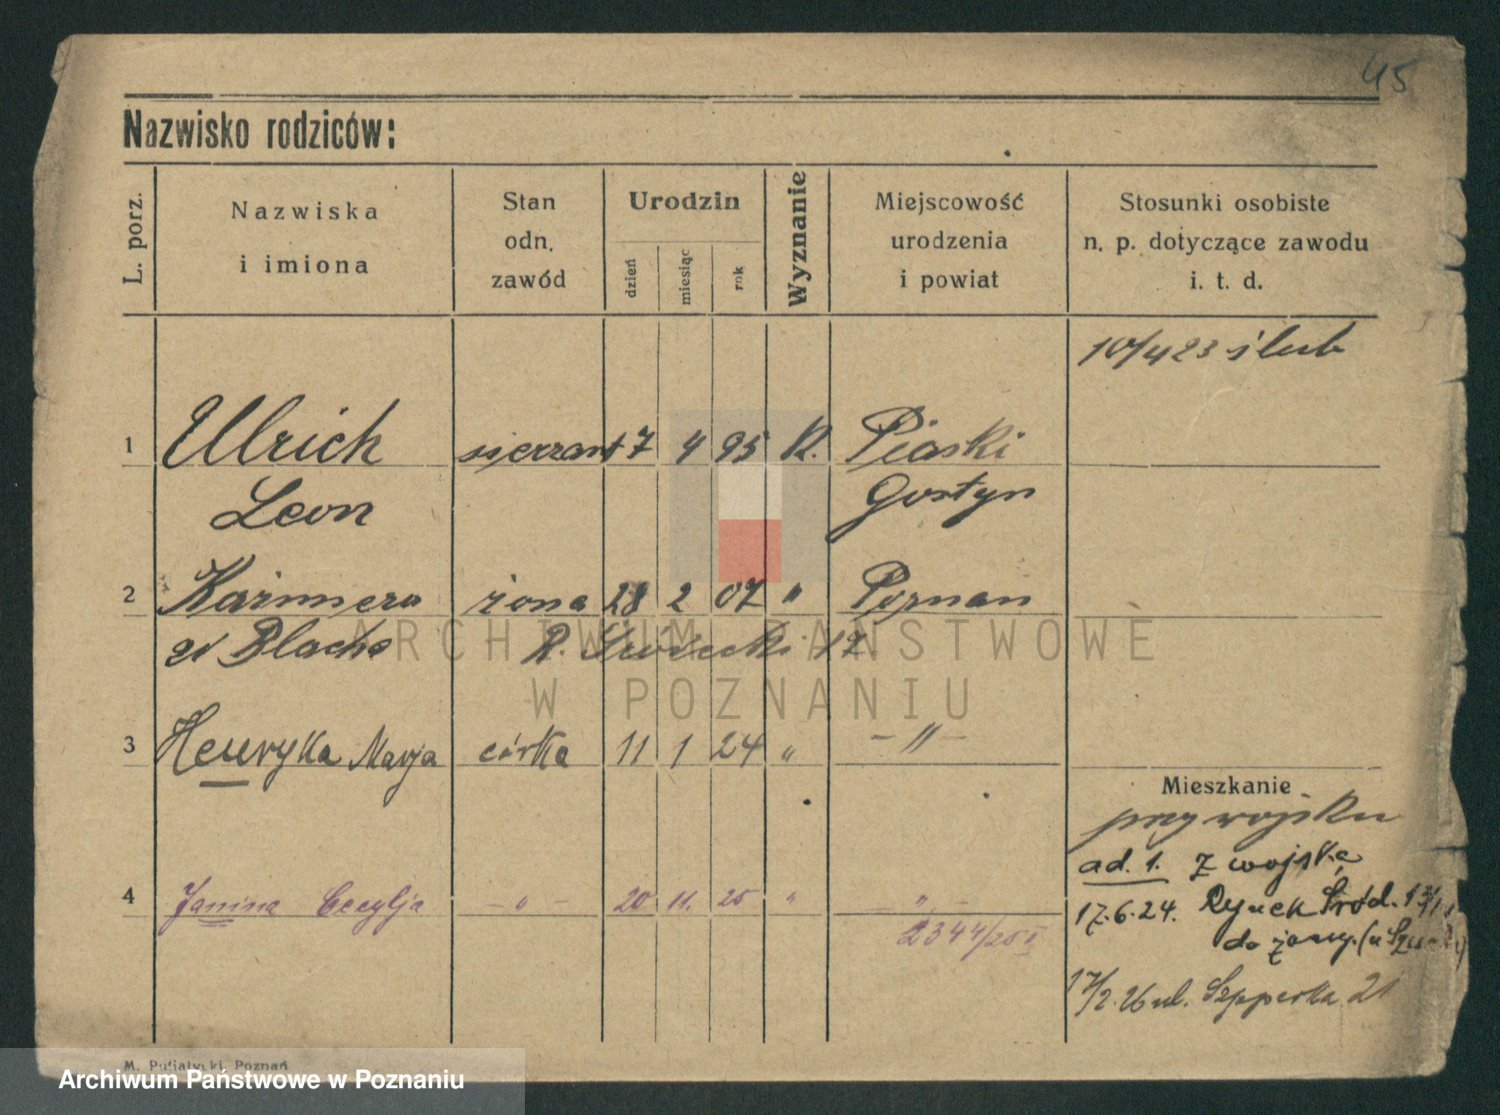 45
Nazwisko rodziców:
L. porz.
Nazwiska
i imiona
Stan
odn.
zawód
Urodzin
dzień
miesiąc
rok
Wyznanie
Miejscowość
urodzenia
i powiat
Stosunki osobiste
n. p. dotyczące zawodu
i. t. d.
10/4 23 ślub
1 Ulrich sierżant 17 4 95 R. Piaski
Leon Gostyn
2 Kazimiera żona 28 2 07 " Poznan
Blacha R. Śródecki 12
3 Henryka Marja córka 11 1 24 " -"-
Mieszkanie
przy wojsku
ad. 1. z wojska
4 Janina Cecylja -"- 20 11. 25 " -"-
17.6.24. Rynek Śród.
2344/25 II
do żony.
17/2. 26 ul. Szpperka 21
M. Putiatycki, Poznań
ARCHIWUM PAŃSTWOWE
W POZNANIU
Archiwum Państwowe w Poznaniu